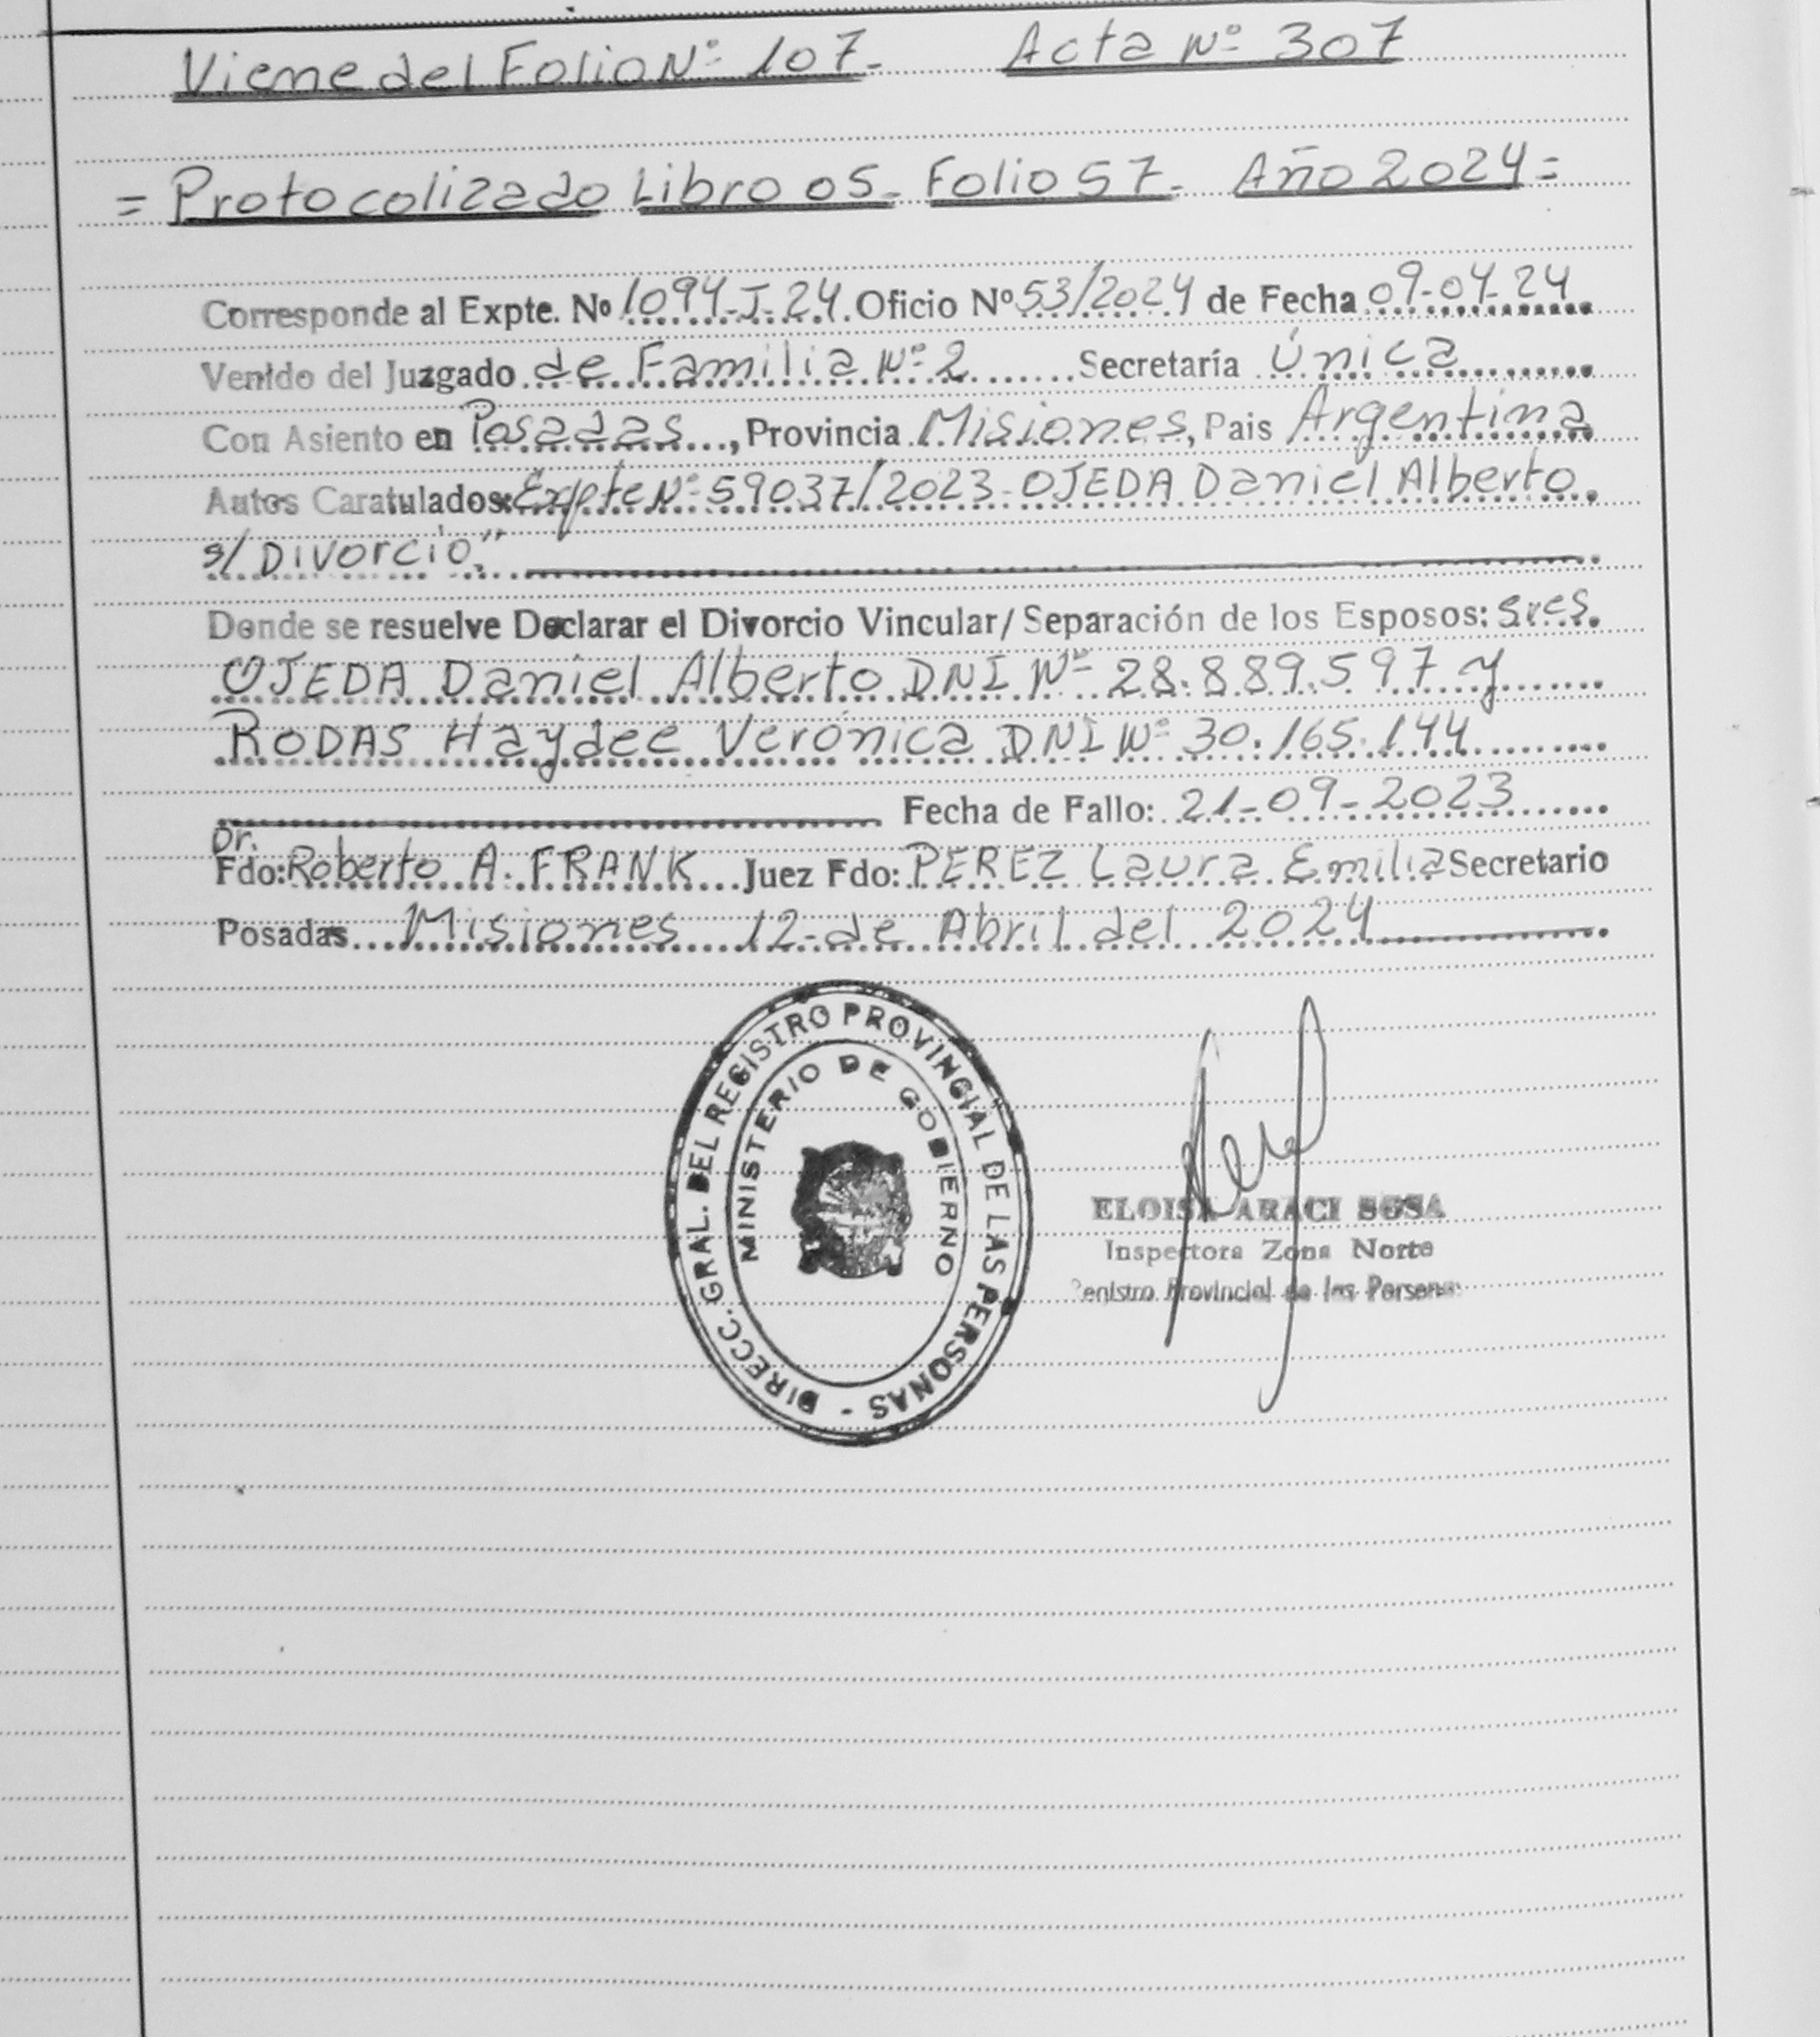 Viene del Folio Nº 107- Acta Nº 307
= Protocolizado Libro 05- Folio 57- Año 2024=
Corresponde al Expte. Nº 1094-J-24. Oficio Nº 53/2024 de Fecha 09-04-24
Venido del Juzgado de Familia Nº 2 Secretaría Única
Con Asiento en Posadas, Provincia Misiones, Pais Argentina
Autos Caratulados: Expte Nº 59037/2023- OJEDA Daniel Alberto
s/ Divorcio"
Donde se resuelve Declarar el Divorcio Vincular/ Separación de los Esposos: Sres.
OJEDA Daniel Alberto DNI Nº 28.889.597 y
RODAS Haydee Verónica DNI Nº 30.165.144
Fecha de Fallo: 21-09-2023
Dr.
Fdo: Roberto A. FRANK Juez Fdo: PEREZ Laura Emilia Secretario
Posadas Misiones 12 de Abril del 2024
DIRECC. GRAL. DEL REGISTRO PROVINCIAL DE LAS PERSONAS -
MINISTERIO DE GOBIERNO
ELOISA ARACI SOSA
Inspectora Zona Norte
Registro Provincial de las Personas